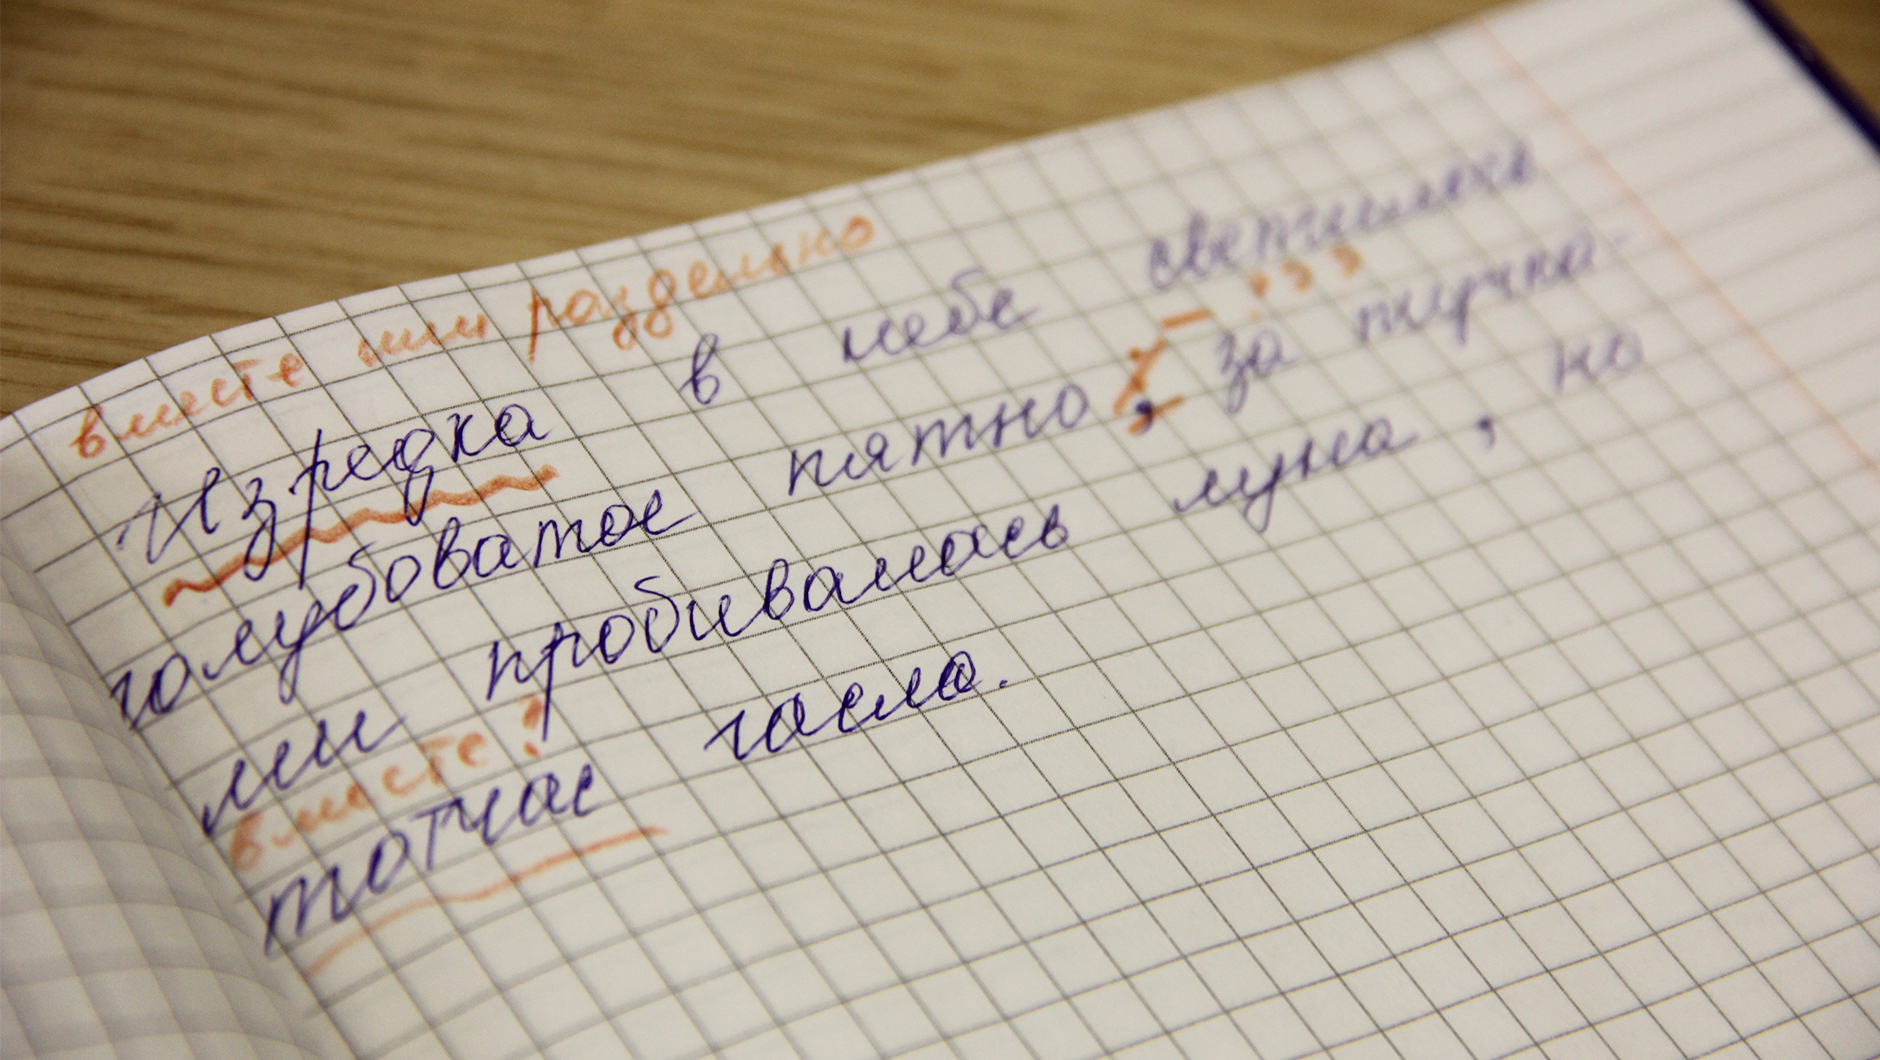 вместе или раздельно
Изредка в небе светилось
голубоватое пятно, за тучка-
ми пробивалась луна, но
вместе?
тотчас гасла.